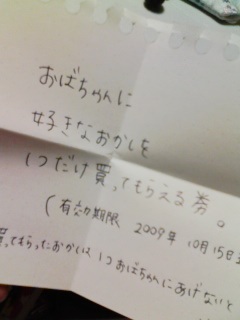 おばちゃんに
好きなおかしを
1つだけ買ってもらえる券。
(有効期限 2009年 10月15日
買ってもらったおかしは 1つおばちゃんにあげないと